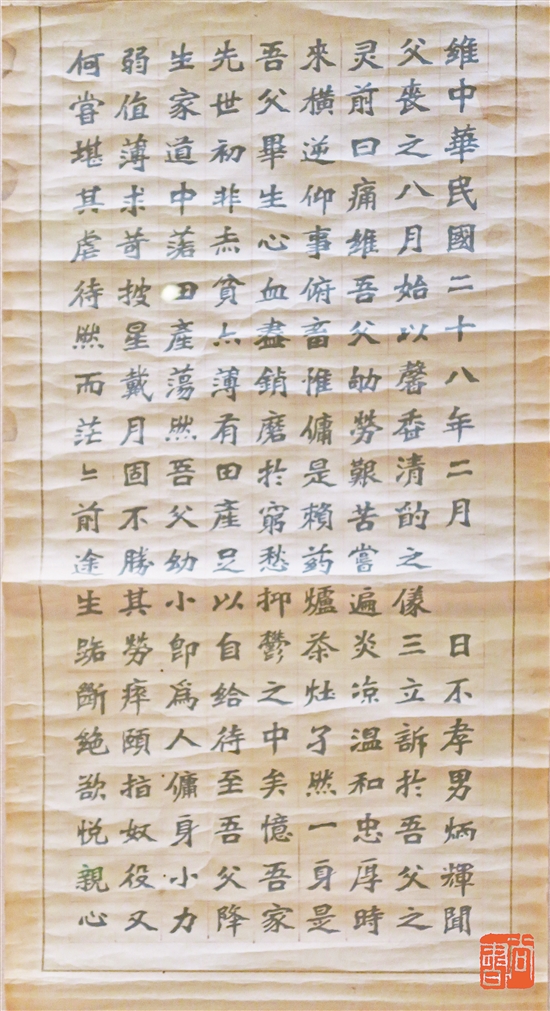 維中華民國二十八年二月　日不孝男炳輝聞
父喪之八月始以馨香清酌之儀三立訴於吾父之
灵前曰痛維吾父劬勞艱苦嘗遍炎凉温和忠厚時
來橫逆仰事俯畜惟傭是賴药爐茶灶了然一身是
吾父畢生心血盡銷磨於窮愁抑鬱之中矣憶吾家
先世初非赤貧亦薄有田產足以自給待至吾父降
生家道中落田產蕩然吾父幼小即為人傭身小力
弱值薄求苛披星戴月固不勝其勞瘁頤指奴役又
何嘗堪其虐待然而茫〻前途生路斷絶欲悅親心